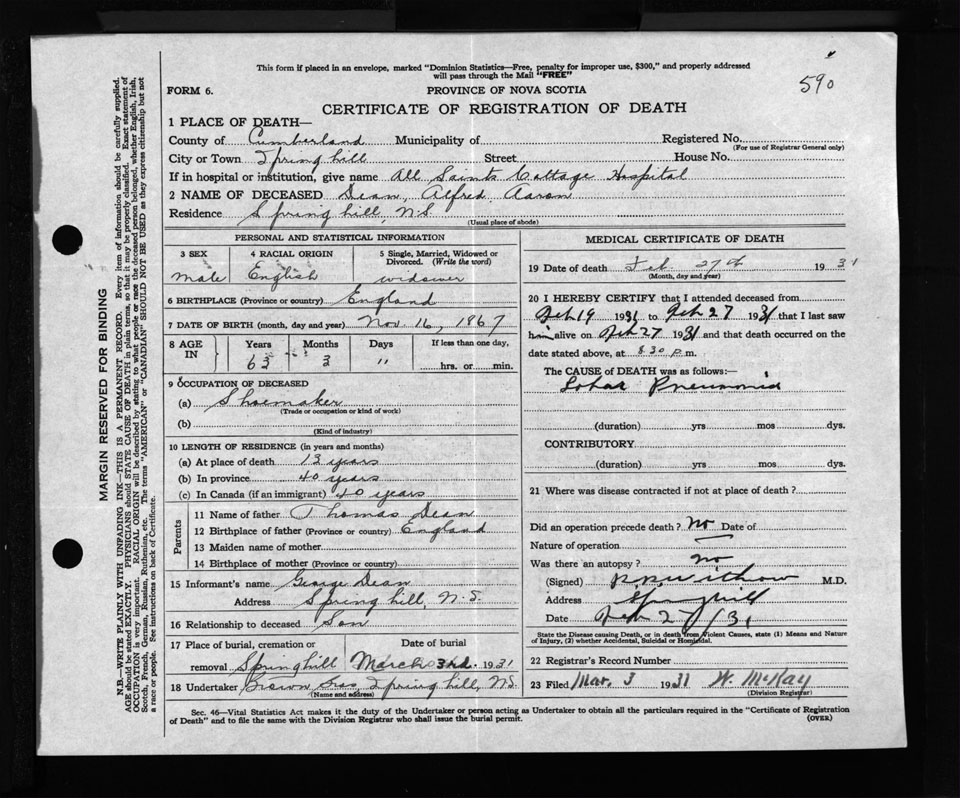 This form if placed in an envelope, marked "Dominion Statistics—Free, penalty for improper use, $300," and properly addressed
will pass through the Mail "FREE"
590
FORM 6.
PROVINCE OF NOVA SCOTIA
CERTIFICATE OF REGISTRATION OF DEATH
1 PLACE OF DEATH—
County of Cumberland Municipality of Registered No.
(For use of Registrar General only)
City or Town Springhill Street House No.
If in hospital or institution, give name All Saints Cottage Hospital
2 NAME OF DECEASED Dean, Alfred Aaron
Residence Springhill, N.S.
(Usual place of abode)
PERSONAL AND STATISTICAL INFORMATION
3 SEX 4 RACIAL ORIGIN 5 Single, Married, Widowed or
Divorced. (Write the word)
male English widower
6 BIRTHPLACE (Province or country) England
7 DATE OF BIRTH (month, day and year) Nov. 16, 1867
8 AGE IN Years Months Days If less than one day,
63 3 " hrs. or min.
9 OCCUPATION OF DECEASED
(a) Shoemaker
(Trade or occupation or kind of work)
(b)
(Kind of industry)
10 LENGTH OF RESIDENCE (in years and months)
(a) At place of death 13 years
(b) In province 40 years
(c) In Canada (if an immigrant) 40 years
Parents
11 Name of father Thomas Dean
12 Birthplace of father (Province or country) England
13 Maiden name of mother
14 Birthplace of mother (Province or country)
15 Informant's name George Dean
Address Springhill, N.S.
16 Relationship to deceased Son
17 Place of burial, cremation or Date of burial
removal Springhill March 3rd. 1931
18 Undertaker Brown Bros, Springhill, N.S.
(Name and address)
MEDICAL CERTIFICATE OF DEATH
19 Date of death Feb. 27th 1931
(Month, day and year)
20 I HEREBY CERTIFY that I attended deceased from
Feb 19 1931 to Feb 27 1931 that I last saw
him alive on Feb 27 1931 and that death occurred on the
date stated above, at 8.30 p.m.
The CAUSE of DEATH was as follows:—
Lobar Pneumonia
(duration) yrs mos dys.
CONTRIBUTORY
(duration) yrs. mos. dys.
21 Where was disease contracted if not at place of death?
Did an operation precede death? No Date of
Nature of operation
Was there an autopsy? no
(Signed) M.D.
Address Springhill
Date Feb 27/31
State the Disease causing Death, or in death from Violent Causes, state (1) Means and Nature
of Injury, (2) whether Accidental, Suicidal or Homicidal.
22 Registrar's Record Number
23 Filed Mar. 3 1931 W. McKay
(Division Registrar)
Sec. 46—Vital Statistics Act makes it the duty of the Undertaker or person acting as Undertaker to obtain all the particulars required in the "Certificate of Registration
of Death" and to file the same with the Division Registrar who shall issue the burial permit. (OVER)
MARGIN RESERVED FOR BINDING
N.B.—WRITE PLAINLY WITH UNFADING INK—THIS IS A PERMANENT RECORD. Every item of information should be carefully supplied.
AGE should be stated EXACTLY. PHYSICIANS should STATE CAUSE OF DEATH in plain terms, so that it may be properly classified. Exact statement of
OCCUPATION is very important. RACIAL ORIGIN will be described by stating to what people or race the deceased person belonged, whether English, Irish,
Scotch, French, German, Russian, Ruthenian, etc. The terms "AMERICAN" or "CANADIAN" SHOULD NOT BE USED as they express citizenship but not
a race or people. See instructions on back of Certificate.